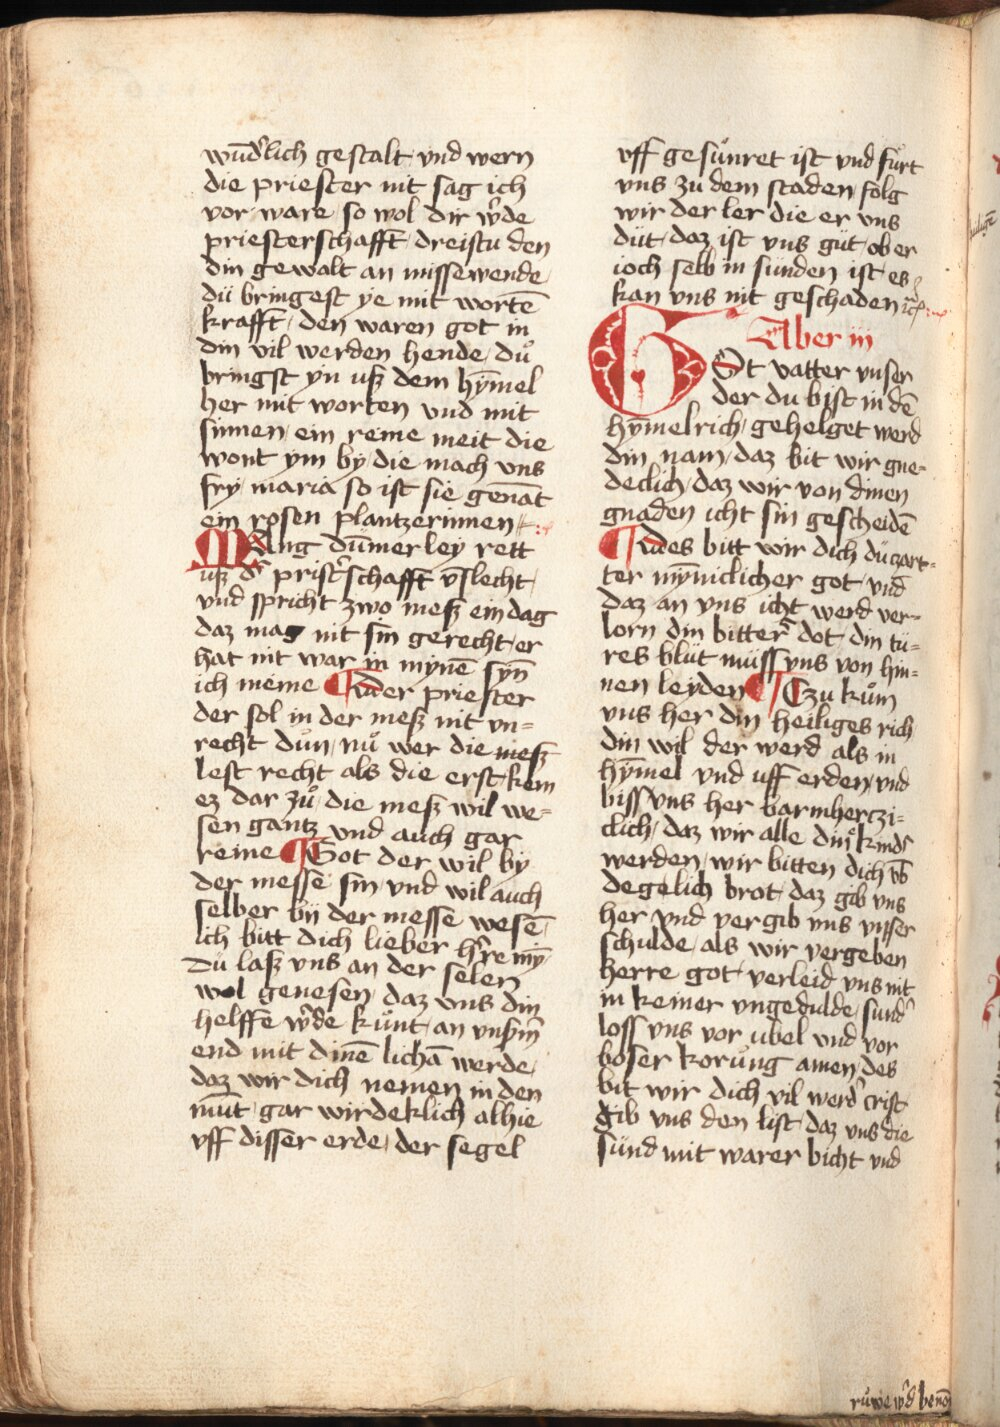 wūd'lich gestalt vnd wern
die priester nit sag ich
vor ware so wol dir w'de
priesterschafft dreistu den
din gewalt an missewende
dü bringest ye mit wortē
krafft den waren got in
din vil werden hende duͦ
bringst yn usz dem hȳmel
her mit worten vnd mit
sinnen ein reine meit die
wont ym by die mach vns
fry maria so ist sie genāt
ein rosen plantzerinnen
Mang dūmerley rett
usz d' prist'schafft v̄slecht
vnd spricht zwo mesz ein dag
daz mag nit sin gerecht er
hat nit war in mynē syn̄
ich meine ¶ Wer priester
der sol in der mesz nit vn=
recht duͦn nuͦ wer die mesz
lest recht als die erst kem
ez dar zuͦ die mesz wil we=
sen gantz vnd auch gar
reine ¶ Got der wil by
der messe sin vnd wil auch
selber by der messe wesē
ich bitt dich lieber h're mȳ
du lasz vns an der selen
wol genesen daz vns din
helffe w'de kuͦnt an vnserm
end mit dinē lichā werde
daz wir dich nemen in den
mūt gar wirdeklich alhie
vff disser erde der segel
vff gesuͦnret ist vnd fuͦrt
vns zü dem staden folg
wir der ler die er vns
düt daz ist vns güt ob er
ioch selb in sünden ist es
kan vns nit geschaden ꝛc
Aber in
GOt vatter vnser
der du bist in dē
hȳmelrich gehelget werd
din nam daz bit wir gne=
declich daz wir von dinen
gnaden icht sin gescheidē
¶ Des bitt wir dich dü zart=
ter mȳniclicher got vnd
daz an vns icht werd ver=
lorn din bitter dot din tü=
res blüt müss vns von hin=
nen leyden ¶ Tzu kuͦm
vns her din heiliges rich
din wil der werd als in
hȳmel vnd uff erden vnd
biss vns her barmherczi=
clich daz wir alle din kind'
werden wir bitten dich vb
degelich brot daz gib vns
her vnd vergib vns vnser
schulde als wir vergeben
herre got verleid vns nit
in keiner vngedulde sund'
loss vns vor ubel vnd vor
boser koruͦng amen des
bit wir dich vil werd' crist
gib vns den list daz vns die
sünd mit warer bicht vnd
ruͦwe w'd beno